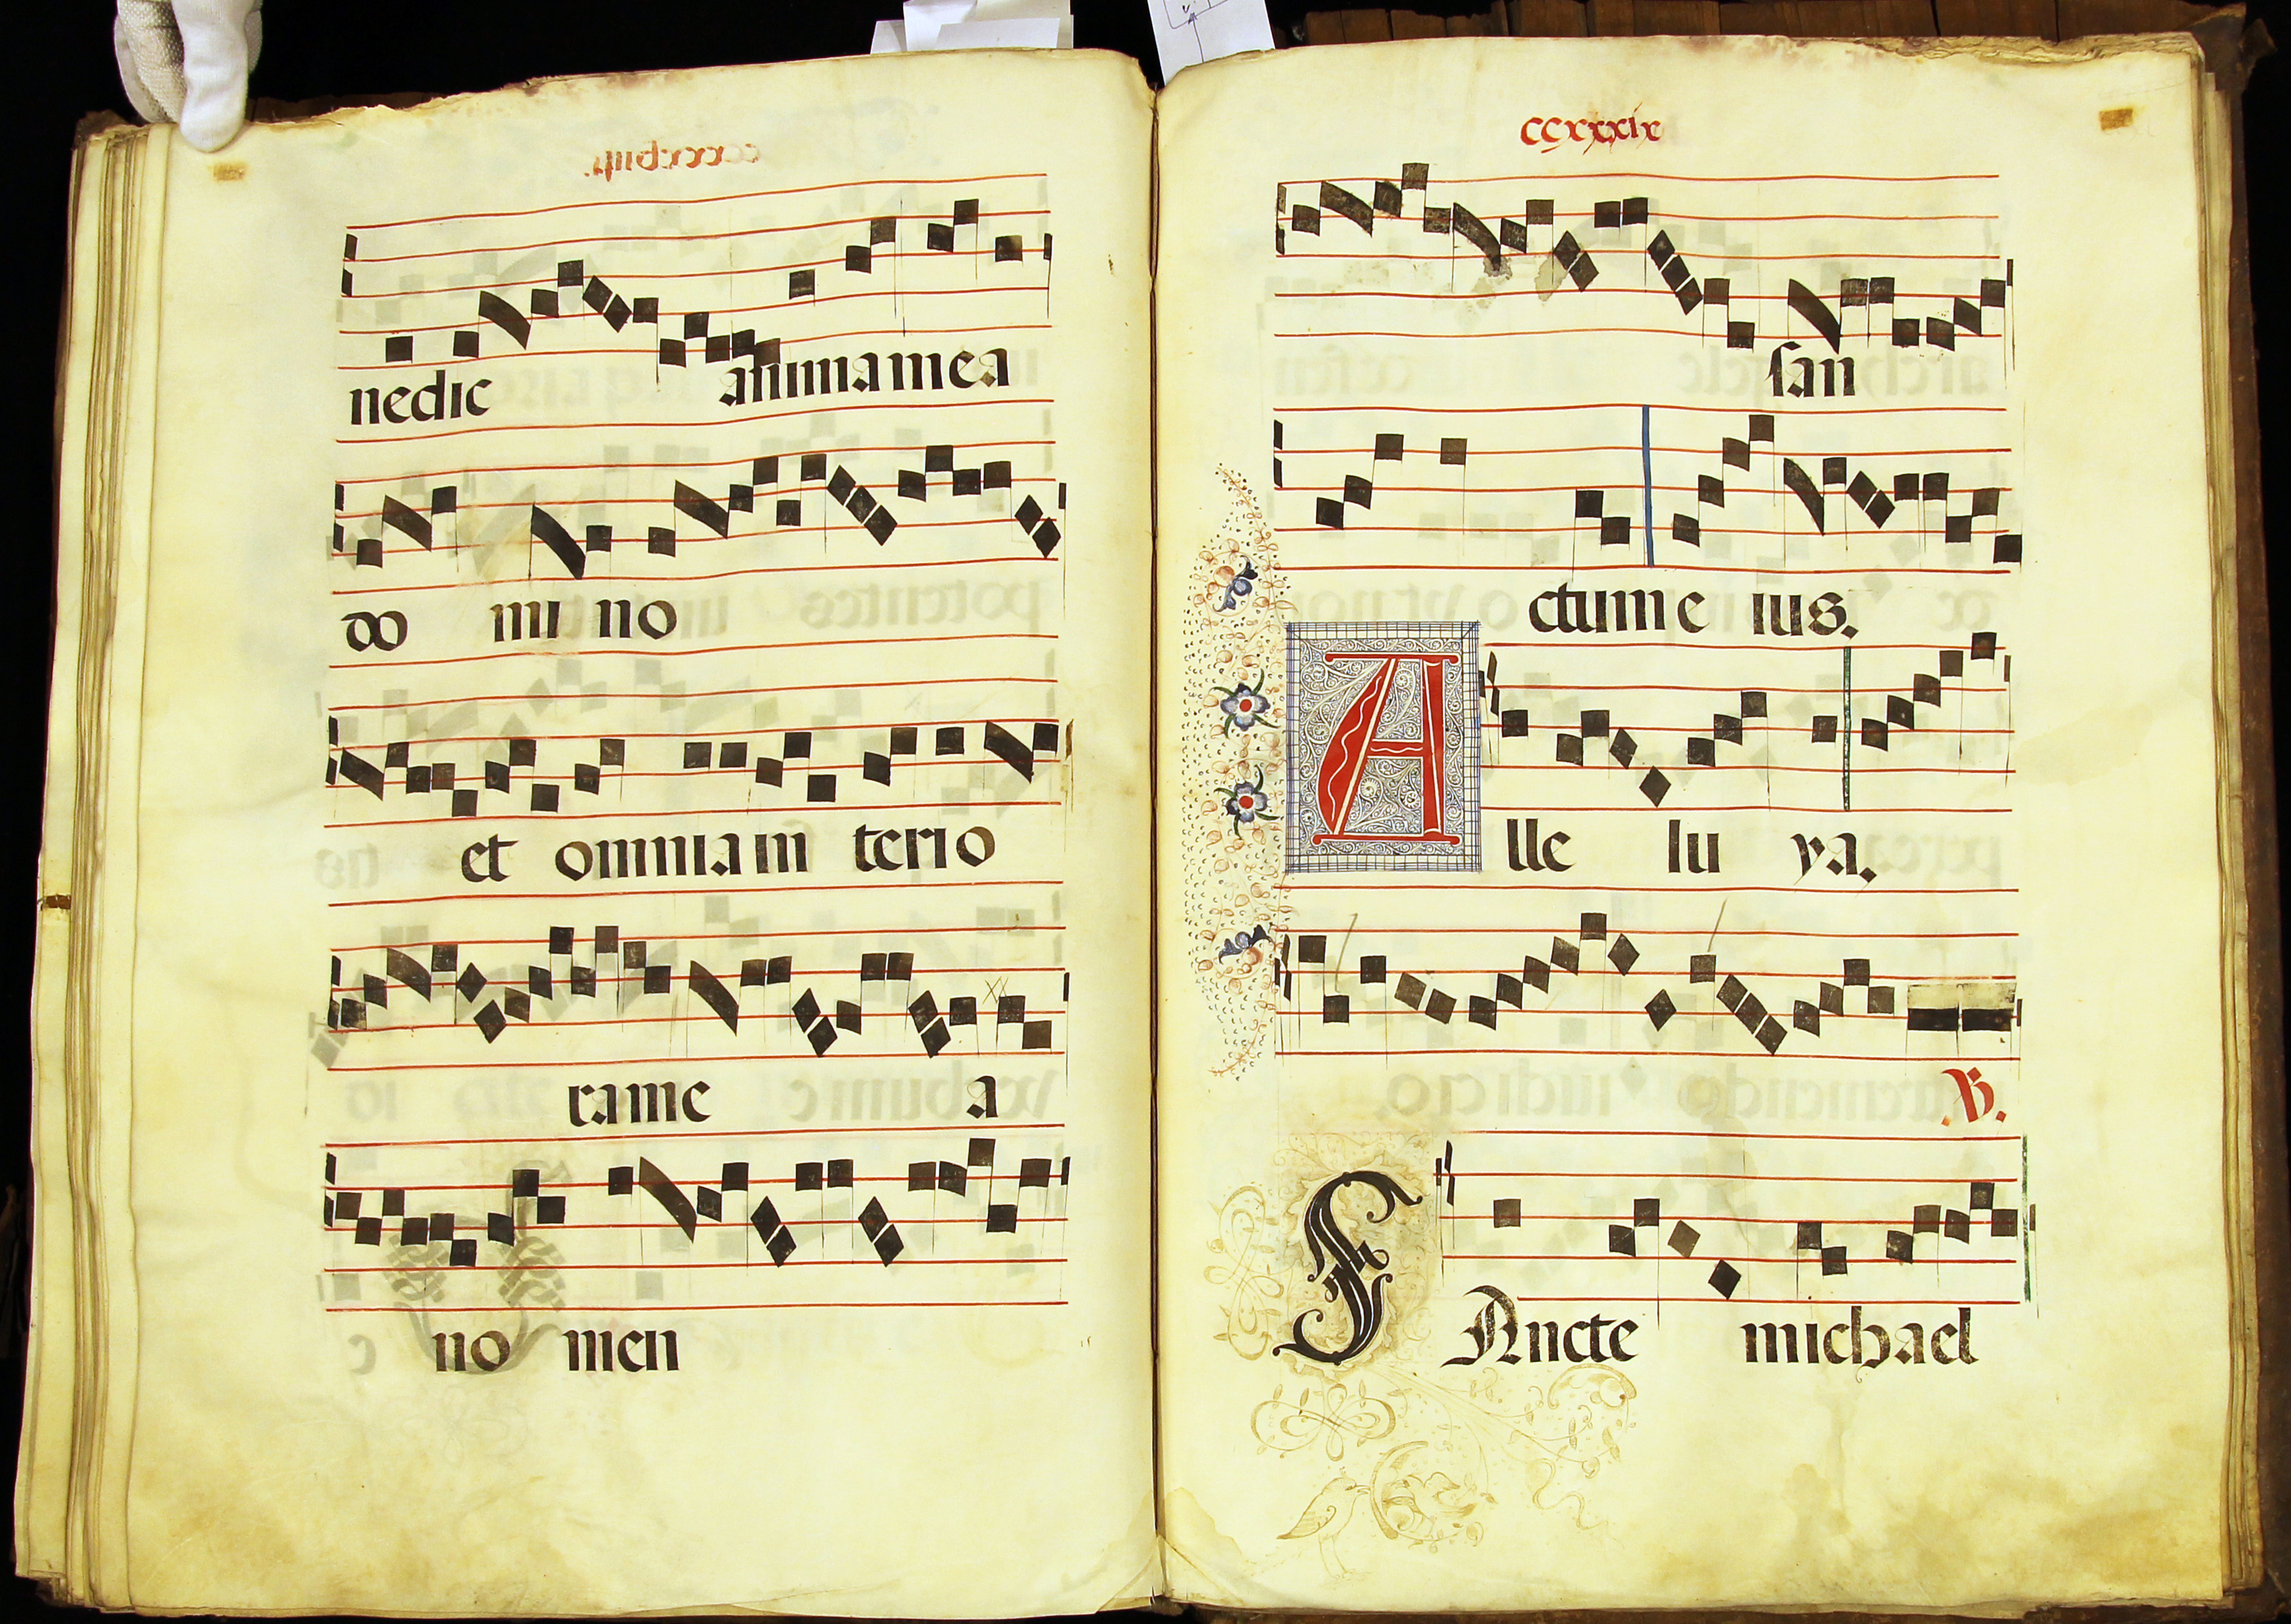 nedic animamea
do mi no
et omniam terio
rame a
no men
ccxxxix
san
ctum e ius.
A lle lu ya.
V.
SAncte michael